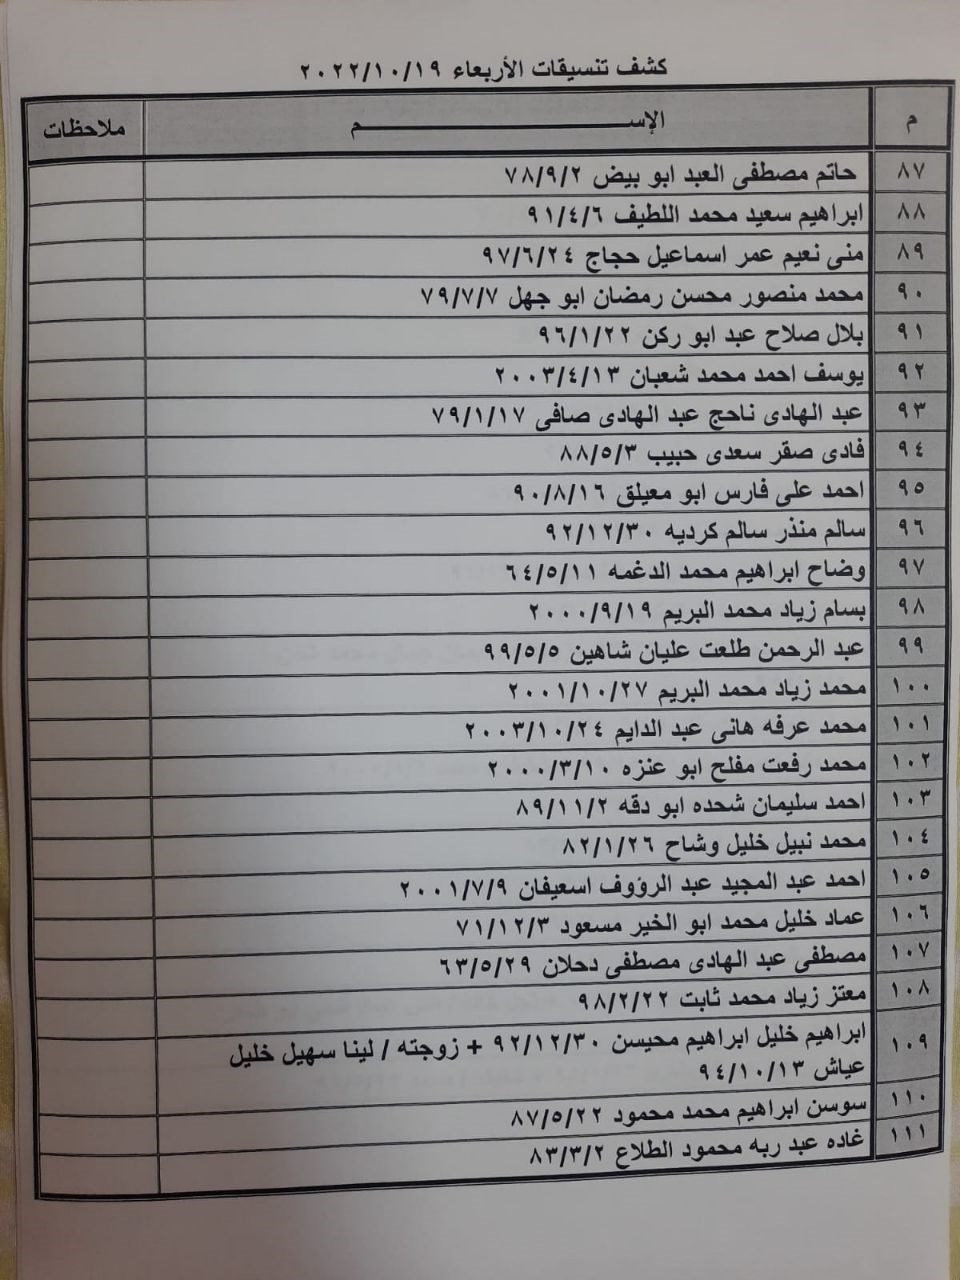 كشف تنسيقات الأربعاء ٢٠٢٢/١٠/١٩
م الإســـــــــــم ملاحظات
٨٧ حاتم مصطفى العبد ابو بيض ٧٨/٩/٢
٨٨ ابراهيم سعيد محمد اللطيف ٩١/٤/٦
٨٩ منى نعيم عمر اسماعيل حجاج ٩٧/٦/٢٤
٩٠ محمد منصور محسن رمضان ابو جهل ٧٩/٧/٧
٩١ بلال صلاح عبد ابو ركن ٩٦/١/٢٢
٩٢ يوسف احمد محمد شعبان ٢٠٠٣/٤/١٣
٩٣ عبد الهادى ناحج عبد الهادى صافى ٧٩/١/١٧
٩٤ فادى صقر سعدى حبيب ٨٨/٥/٣
٩٥ احمد على فارس ابو معيلق ٩٠/٨/١٦
٩٦ سالم منذر سالم كرديه ٩٢/١٢/٣٠
٩٧ وضاح ابراهيم محمد الدغمه ٦٤/٥/١١
٩٨ بسام زياد محمد البريم ٢٠٠٠/٩/١٩
٩٩ عبد الرحمن طلعت عليان شاهين ٩٩/٥/٥
١٠٠ محمد زياد محمد البريم ٢٠٠١/١٠/٢٧
١٠١ محمد عرفه هانى عبد الدايم ٢٠٠٣/١٠/٢٤
١٠٢ محمد رفعت مفلح ابو عنزه ٢٠٠٠/٣/١٠
١٠٣ احمد سليمان شحده ابو دقه ٨٩/١١/٢
١٠٤ محمد نبيل خليل وشاح ٨٢/١/٢٦
١٠٥ احمد عبد المجيد عبد الرؤوف اسعيفان ٢٠٠١/٧/٩
١٠٦ عماد خليل محمد ابو الخير مسعود ٧١/١٢/٣
١٠٧ مصطفى عبد الهادى مصطفى دحلان ٦٣/٥/٢٩
١٠٨ معتز زياد محمد ثابت ٩٨/٢/٢٢
١٠٩ ابراهيم خليل ابراهيم محيسن ٩٢/١٢/٣٠ + زوجته / لينا سهيل خليل
عياش ٩٤/١٠/١٣
١١٠ سوسن ابراهيم محمد محمود ٨٧/٥/٢٢
١١١ غاده عبد ربه محمود الطلاع ٨٣/٣/٢